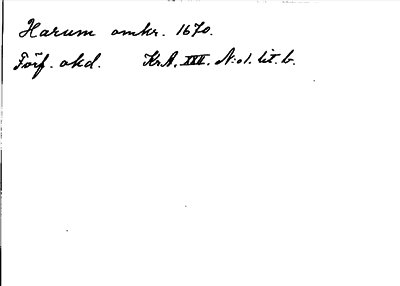 Harum omkr. 1670.
Förf. okd. KrA. XXII. N:o1. lit. b.